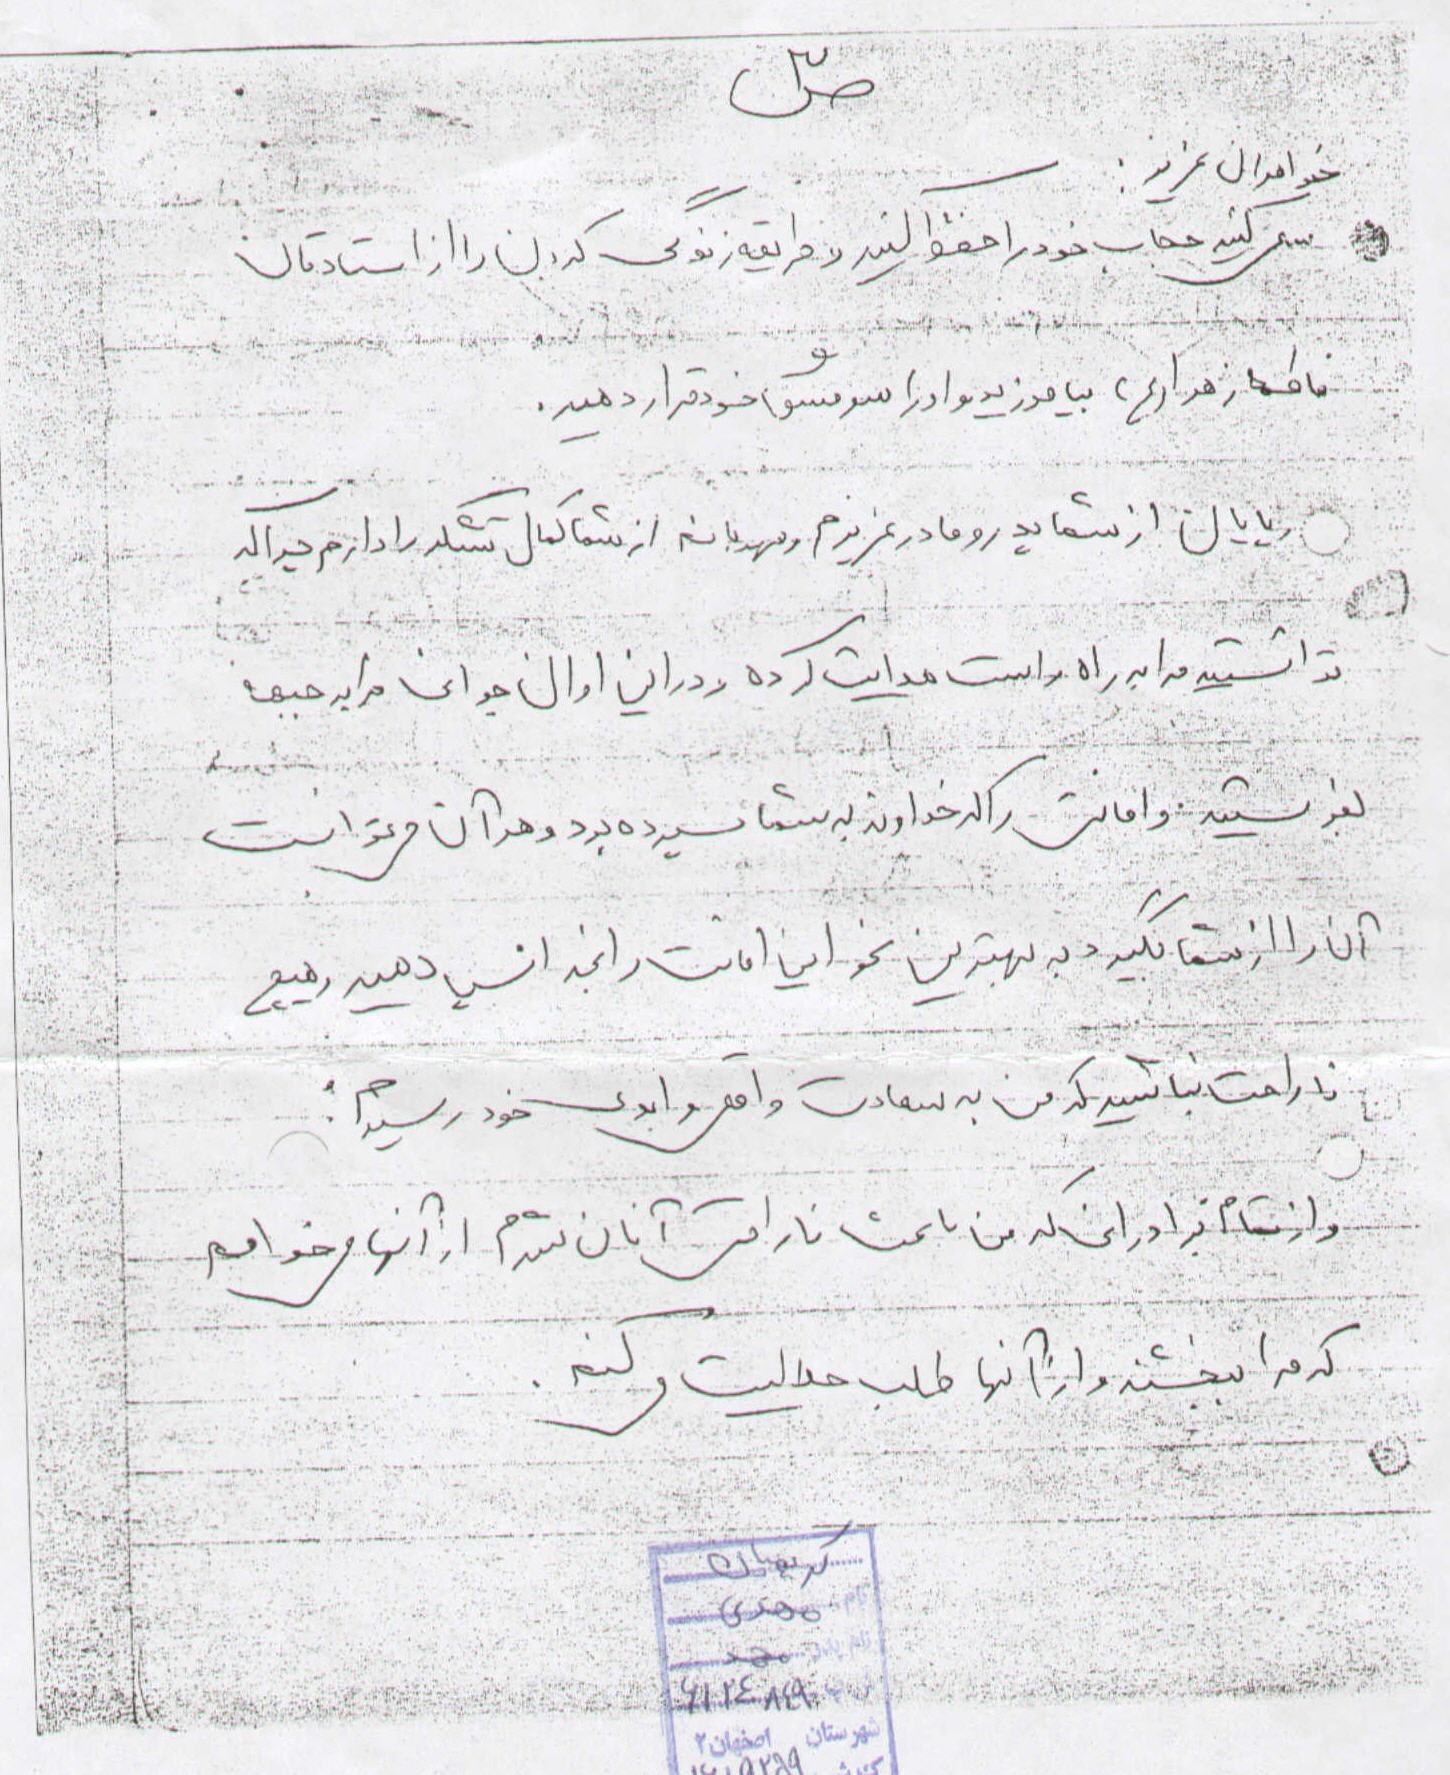 ص ۳
خواهران عزیز:
سعی کنید حجاب خود را حفظ کنید و طریقه زندگی کردن را از استادتان
فاطمه زهرا (س) بیاموزید و او را سرمشق خود قرار دهید.
در پایان از شما پدر و مادر عزیزم و مهربانم از شما کمال تشکر را دارم چرا که
توانستید مرا به راه راست هدایت کرده و در این اوان جوانی مرا به جبهه
بفرستید و امانتی را که خداوند به شما سپرده بود و هر آن می‌توانست
آن را از شما بگیرد به بهترین نحو این امانت را بخدا پس دهید و هیچ
ناراحت نباشید که من به سعادت واقعی و ابدی خود رسیدم:
و از تمام برادرانی که من باعث ناراحتی آنان شدم از آنها می‌خواهم
که مرا ببخشند و از آنها طلب حلالیت می‌کنم.
نام مهدی
نام پدر محمد
شهرستان اصفهان ۲